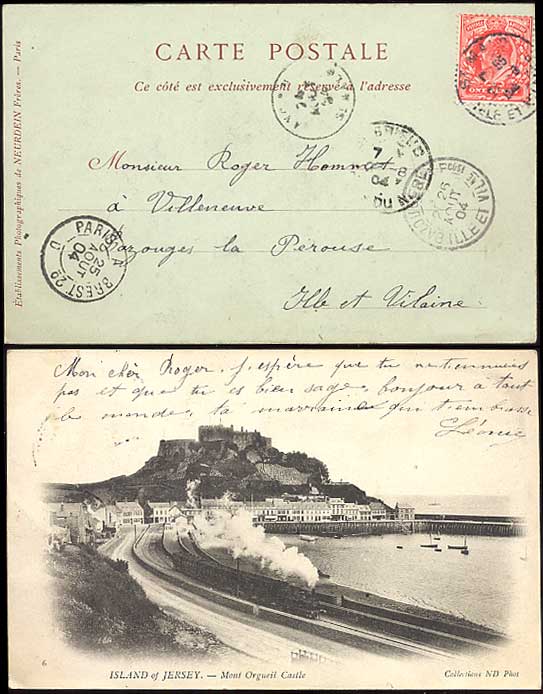 CARTE POSTALE
Ce côté est exclusivement réservé à l'adresse
Établissements Photographiques de NEURDEIN Frères. — Paris
Monsieur Roger Hommet
à Villeneuve
Bazouges la Pérouse
Ille et Vilaine
PARIS A
BREST 2º
25
AOUT
04
BRIEUC
7
04
DU NORD
26
AOUT
04
ILLE ET VILNE
Mon cher Roger. j'espère que tu ne t'ennuies
pas et que tu es bien sage, bonjour à tout
le monde, la marraine qui t'embrasse
Léonie
6
ISLAND of JERSEY. — Mont Orgueil Castle
Collections ND Phot